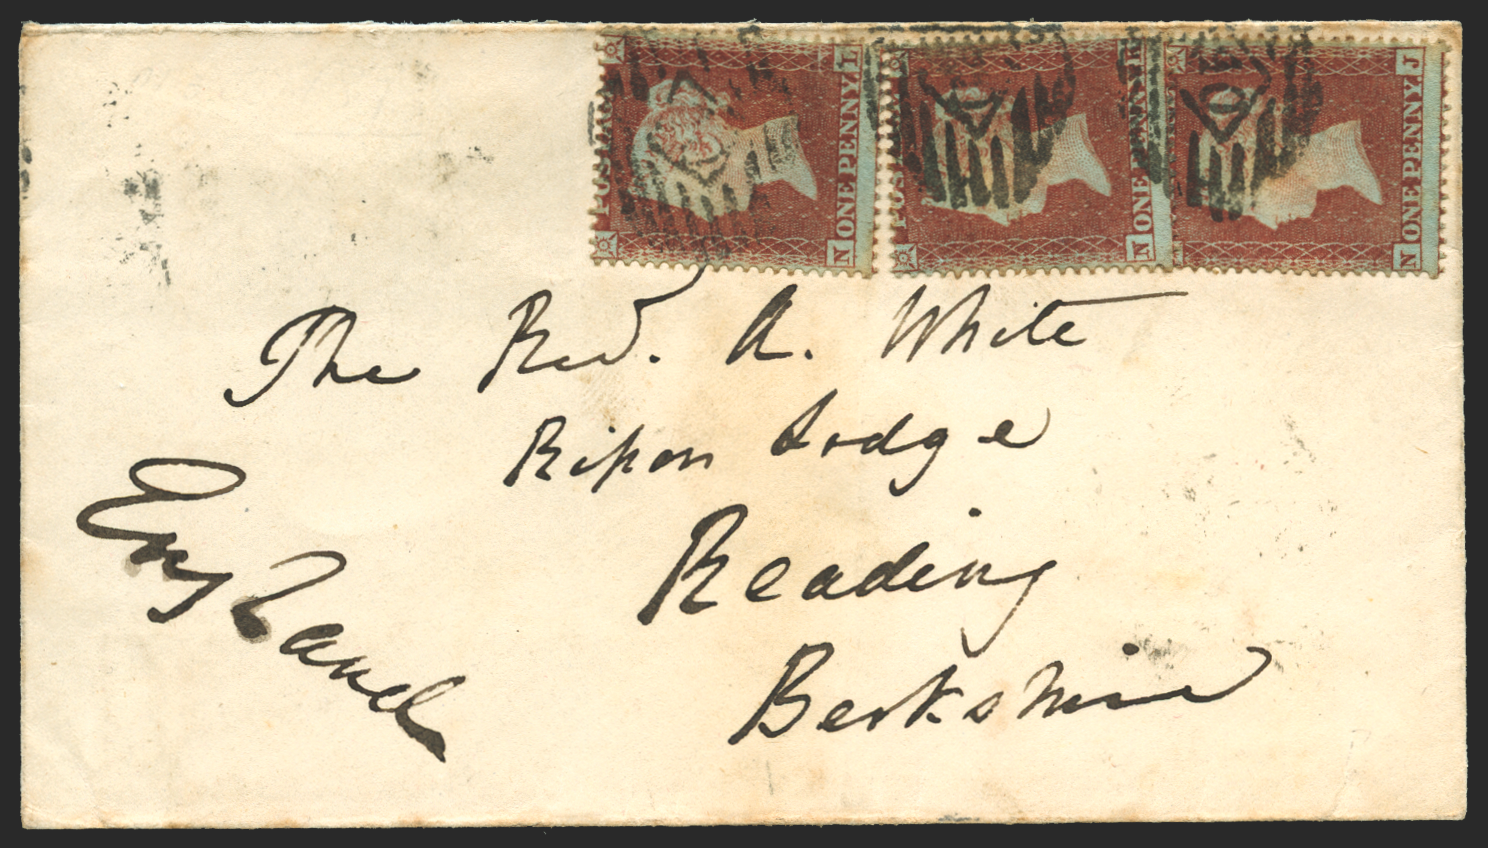 POSTAGE ONE PENNY N L
POS ONE PENNY N
ONE PENNY N J
The Rev. A. White
Ripon Lodge
Reading
Berkshire
England